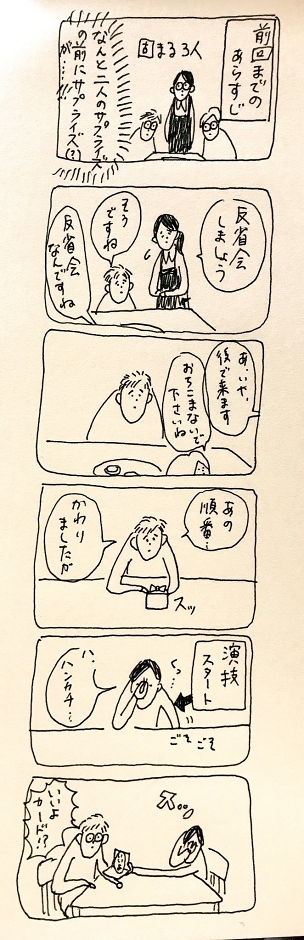 前回までの
あらすじ
固まる3人
なんと二人のサプライズ
の前にサプライズ(?)
が…!!
反省会
しましょう
そう
ですね
反省会
なんですね
あ、いや、
後で来ます
おちこまないで
下さいね
あの
順番…
かわり
ましたが
スッ
演技
スタート
くっ…
ハ、
ハンカチ…
ごそごそ
ス…
いいよ
カード!?